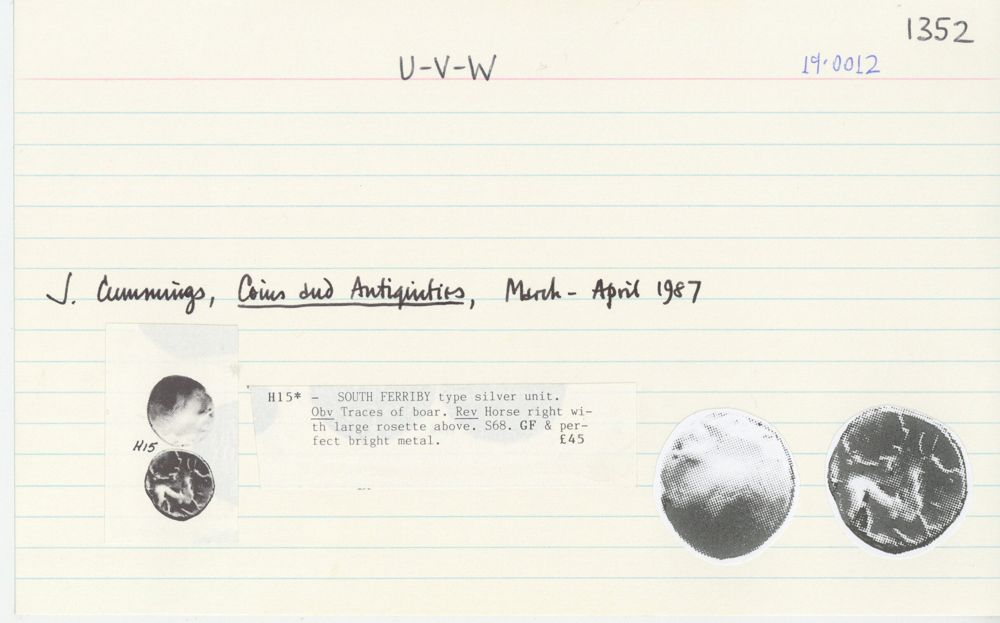 1352
U-V-W
19.0012
J. Cummings, Coins and Antiquities, March - April 1987
H15
H15* - SOUTH FERRIBY type silver unit.
Obv Traces of boar. Rev Horse right wi-
th large rosette above. S68. GF & per-
fect bright metal. £45